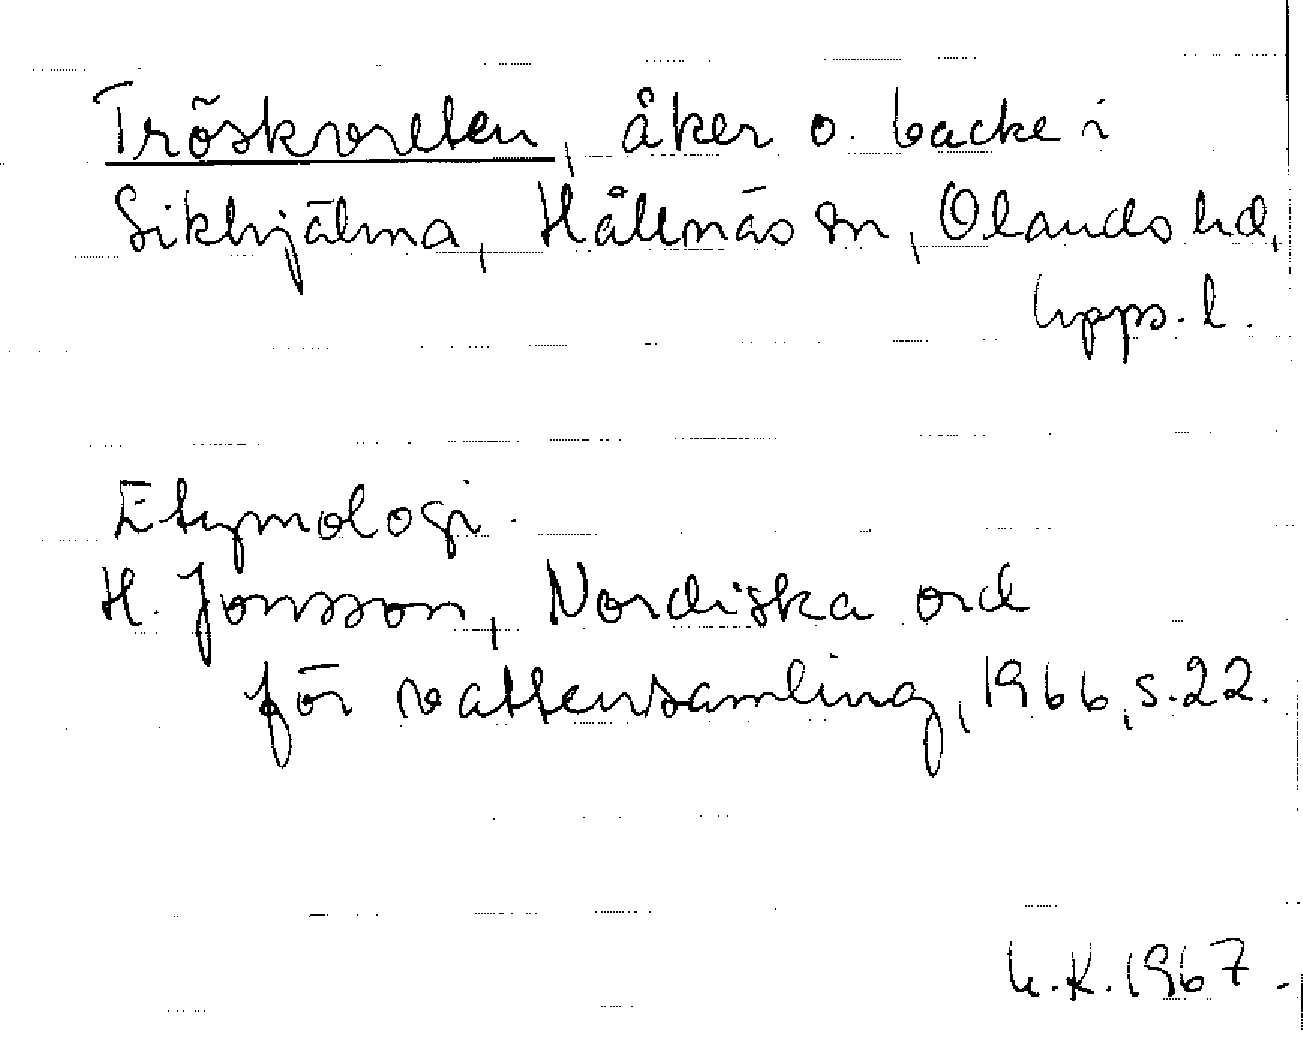 Tröskvreten, åker o. backe i
Sikhjälma, Hållnäs sn, Olands hd,
Upps. l.
Etymologi.
H. Jonsson, Nordiska ord
för vattensamling, 1966, s. 22.
U.K. 1967.